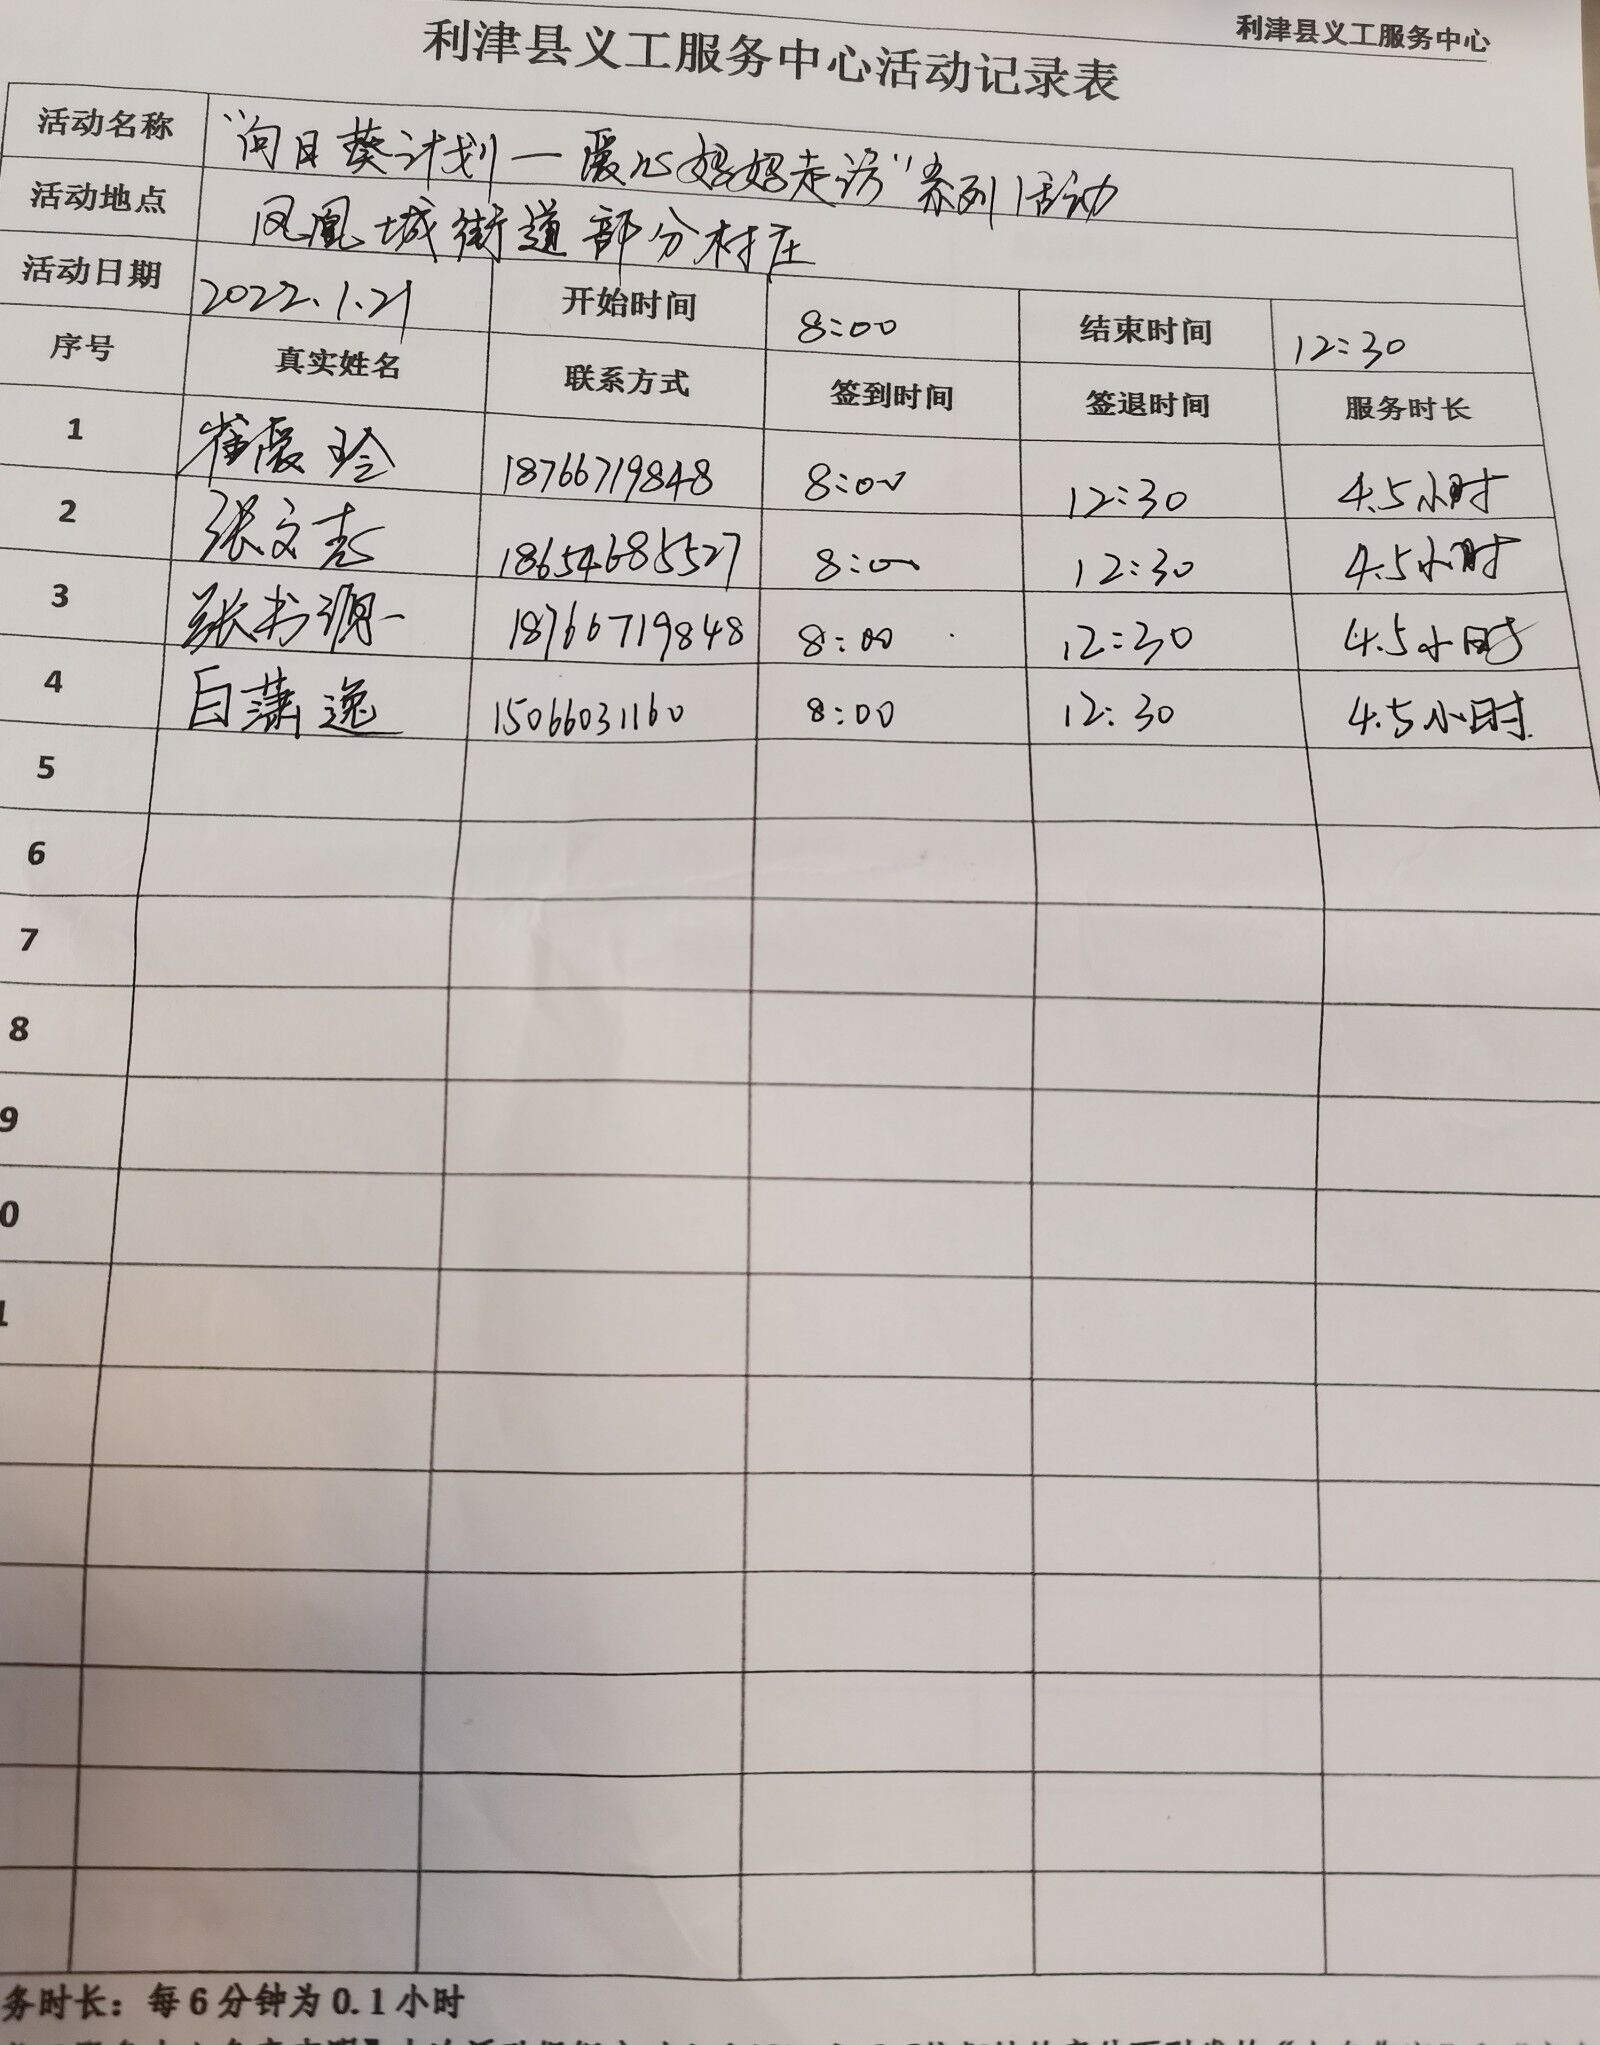 利津县义工服务中心
利津县义工服务中心活动记录表
活动名称 “向日葵计划—爱心妈妈走访”系列活动
活动地点 凤凰城街道部分村庄
活动日期 2022.1.21 开始时间 8:00 结束时间 12:30
序号 真实姓名 联系方式 签到时间 签退时间 服务时长
1 崔霞玲 18766719848 8:00 12:30 4.5小时
2 张文志 18654685527 8:00 12:30 4.5小时
3 张书 18766719848 8:00 12:30 4.5小时
4 白潇逸 15066031160 8:00 12:30 4.5小时
5
6
7
8
9
0
1
务时长：每6分钟为0.1小时